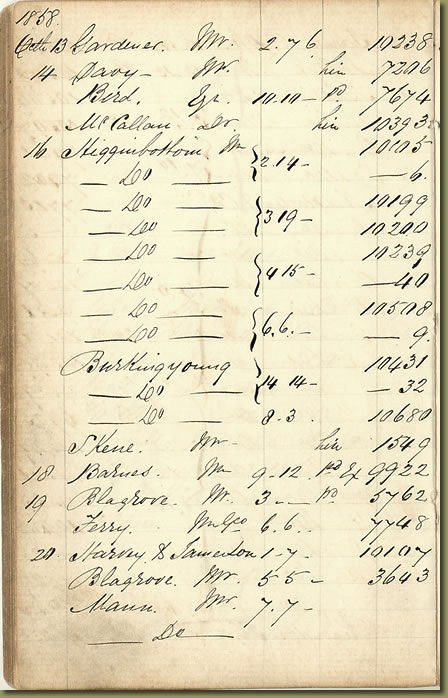 1858.
Octr 13 Gardener. Mr. 2.7 6 10238
14 Davy - Mr. hir 7206
Bird. Esr. 10.10 - pd 7674
McCallan Dr. hir 10393
16 Higginbottom Mr 10105
— Do — } 2 14 - — 6.
— Do — 10199
— Do — } 3 19 - 10200
— Do — 10239
— Do — } 4 15 - — 40
— Do — 10508
— Do — } 6.6. - — 9.
Burkingyoung 10431
— Do — } 14 14 - — 32
— Do — 8.3. 10680
Skene. Mr - hir 1549
18 Barnes. Mr 9-12. pd Ex 9922
19 Blagrove. Mr. 3.— pd 5762
Ferry. 6.6. 7748
20 Harvey & 1-7. 10107
Blagrove. Mr. 5 5 - 3643
Mann. Mr. 7.7 -
— Do —